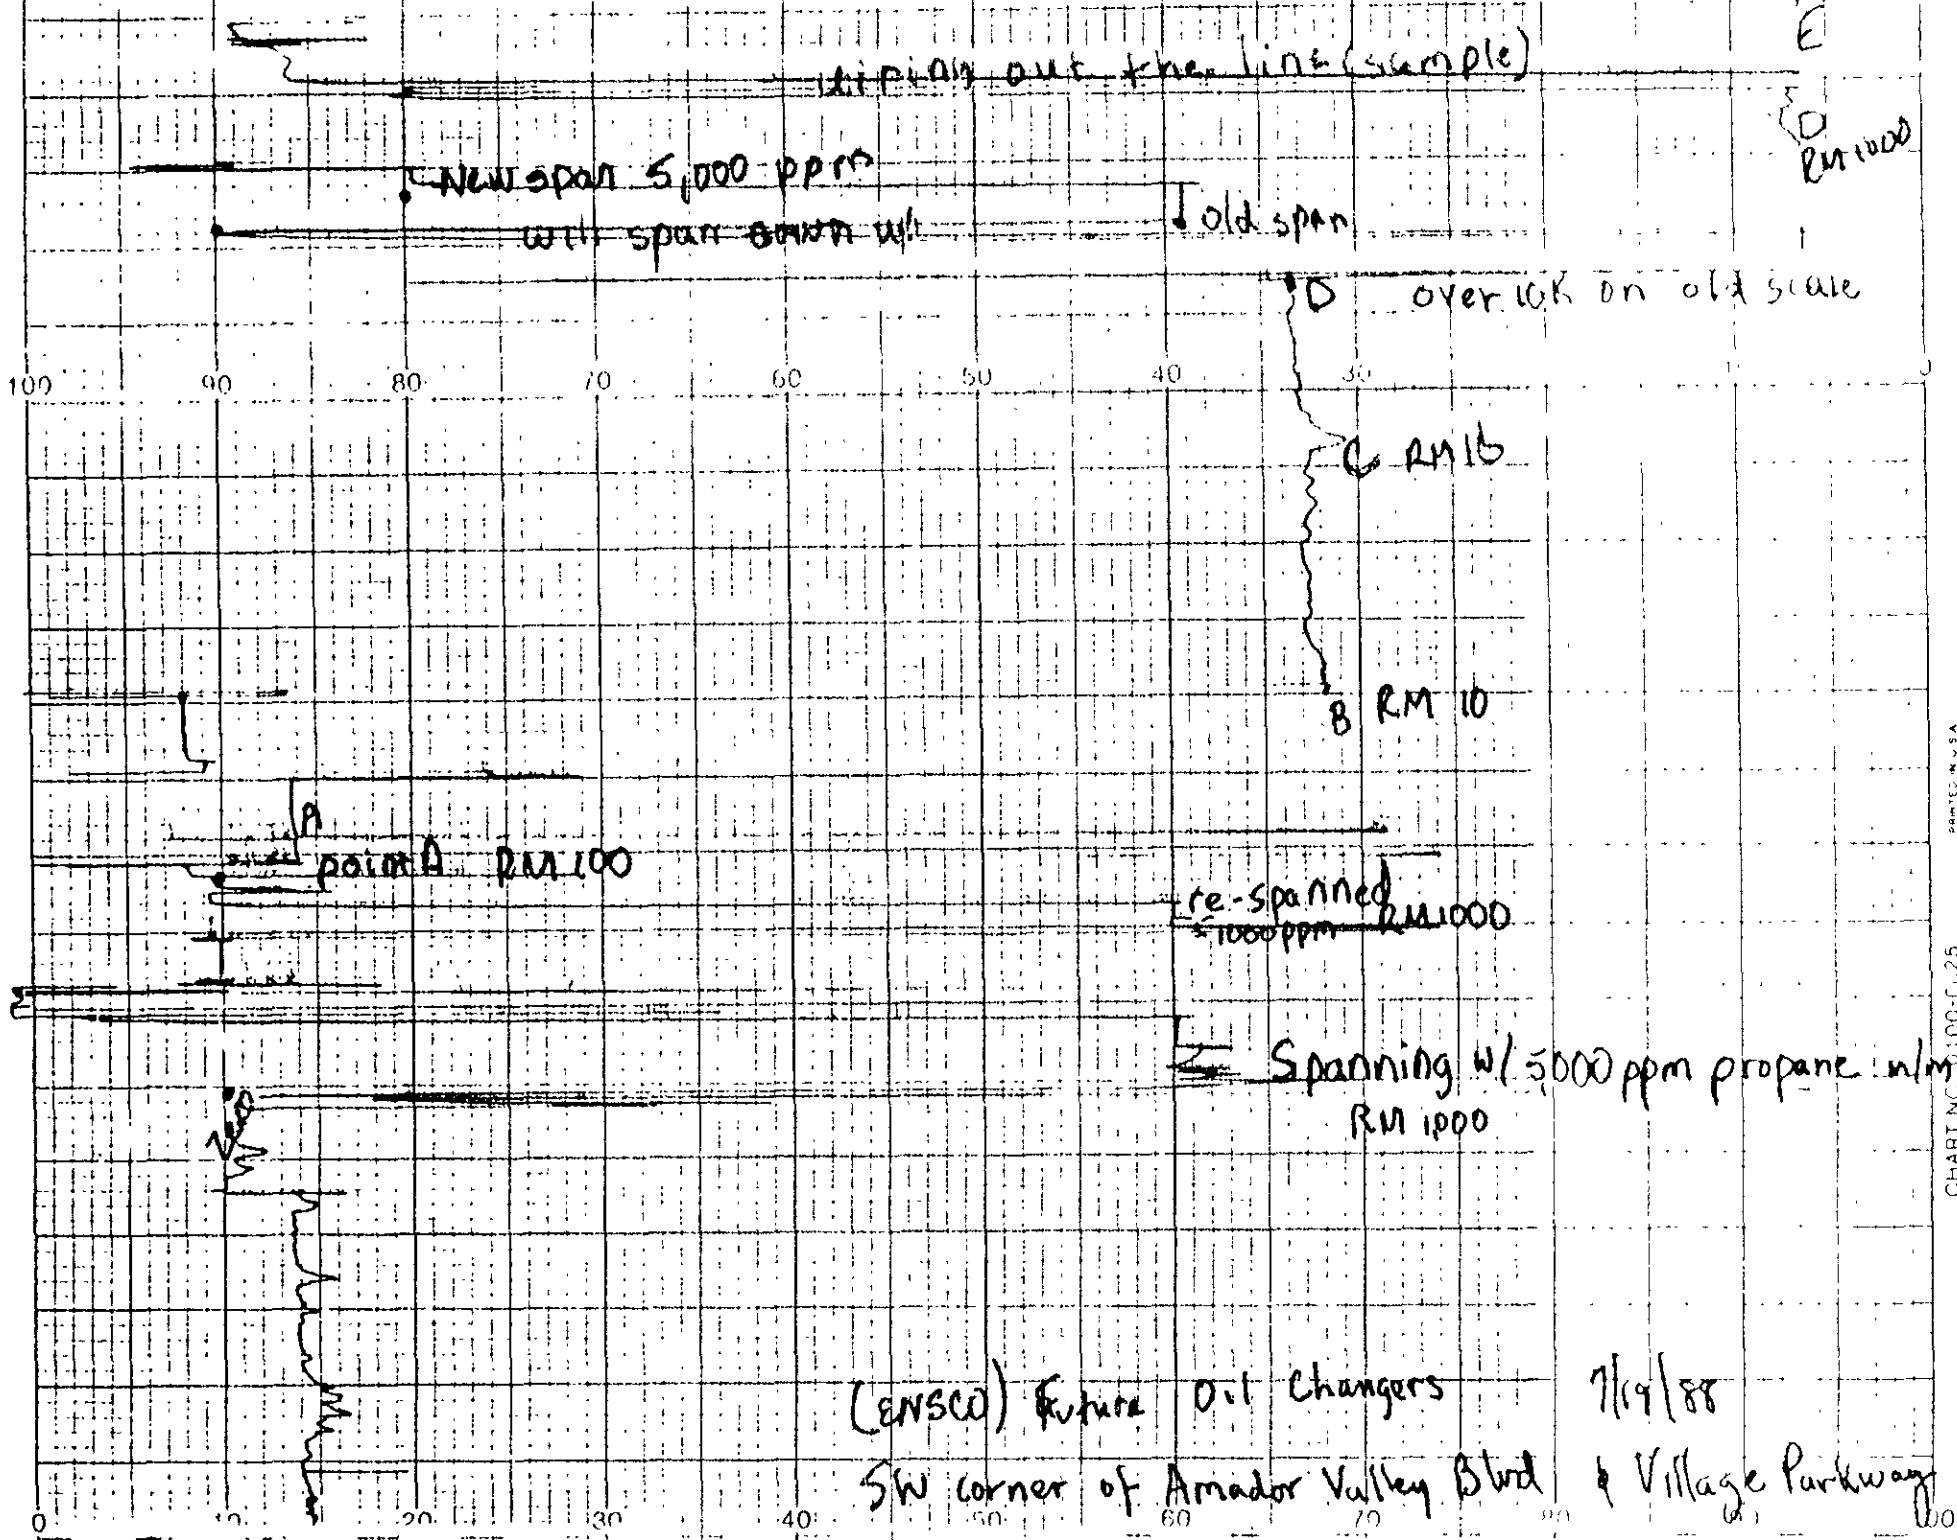 E
out the line (sample)
D
RM 1000
New span 5,000 ppm
will span down w/
old span
D over 10K on old scale
100 90 80 70 60 50 40 30
C RM 10
B RM 10
A
point A RM 100
re-spanned
RM 1000
1000 ppm
Spanning w/ 5000 ppm propane
RM 1000
PRINTED IN U.S.A.
CHART NO.
(ENSCO) Future Oil Changers 7/19/88
SW corner of Amador Valley Blvd & Village Parkway
0 10 20 30 40 50 60 70 80